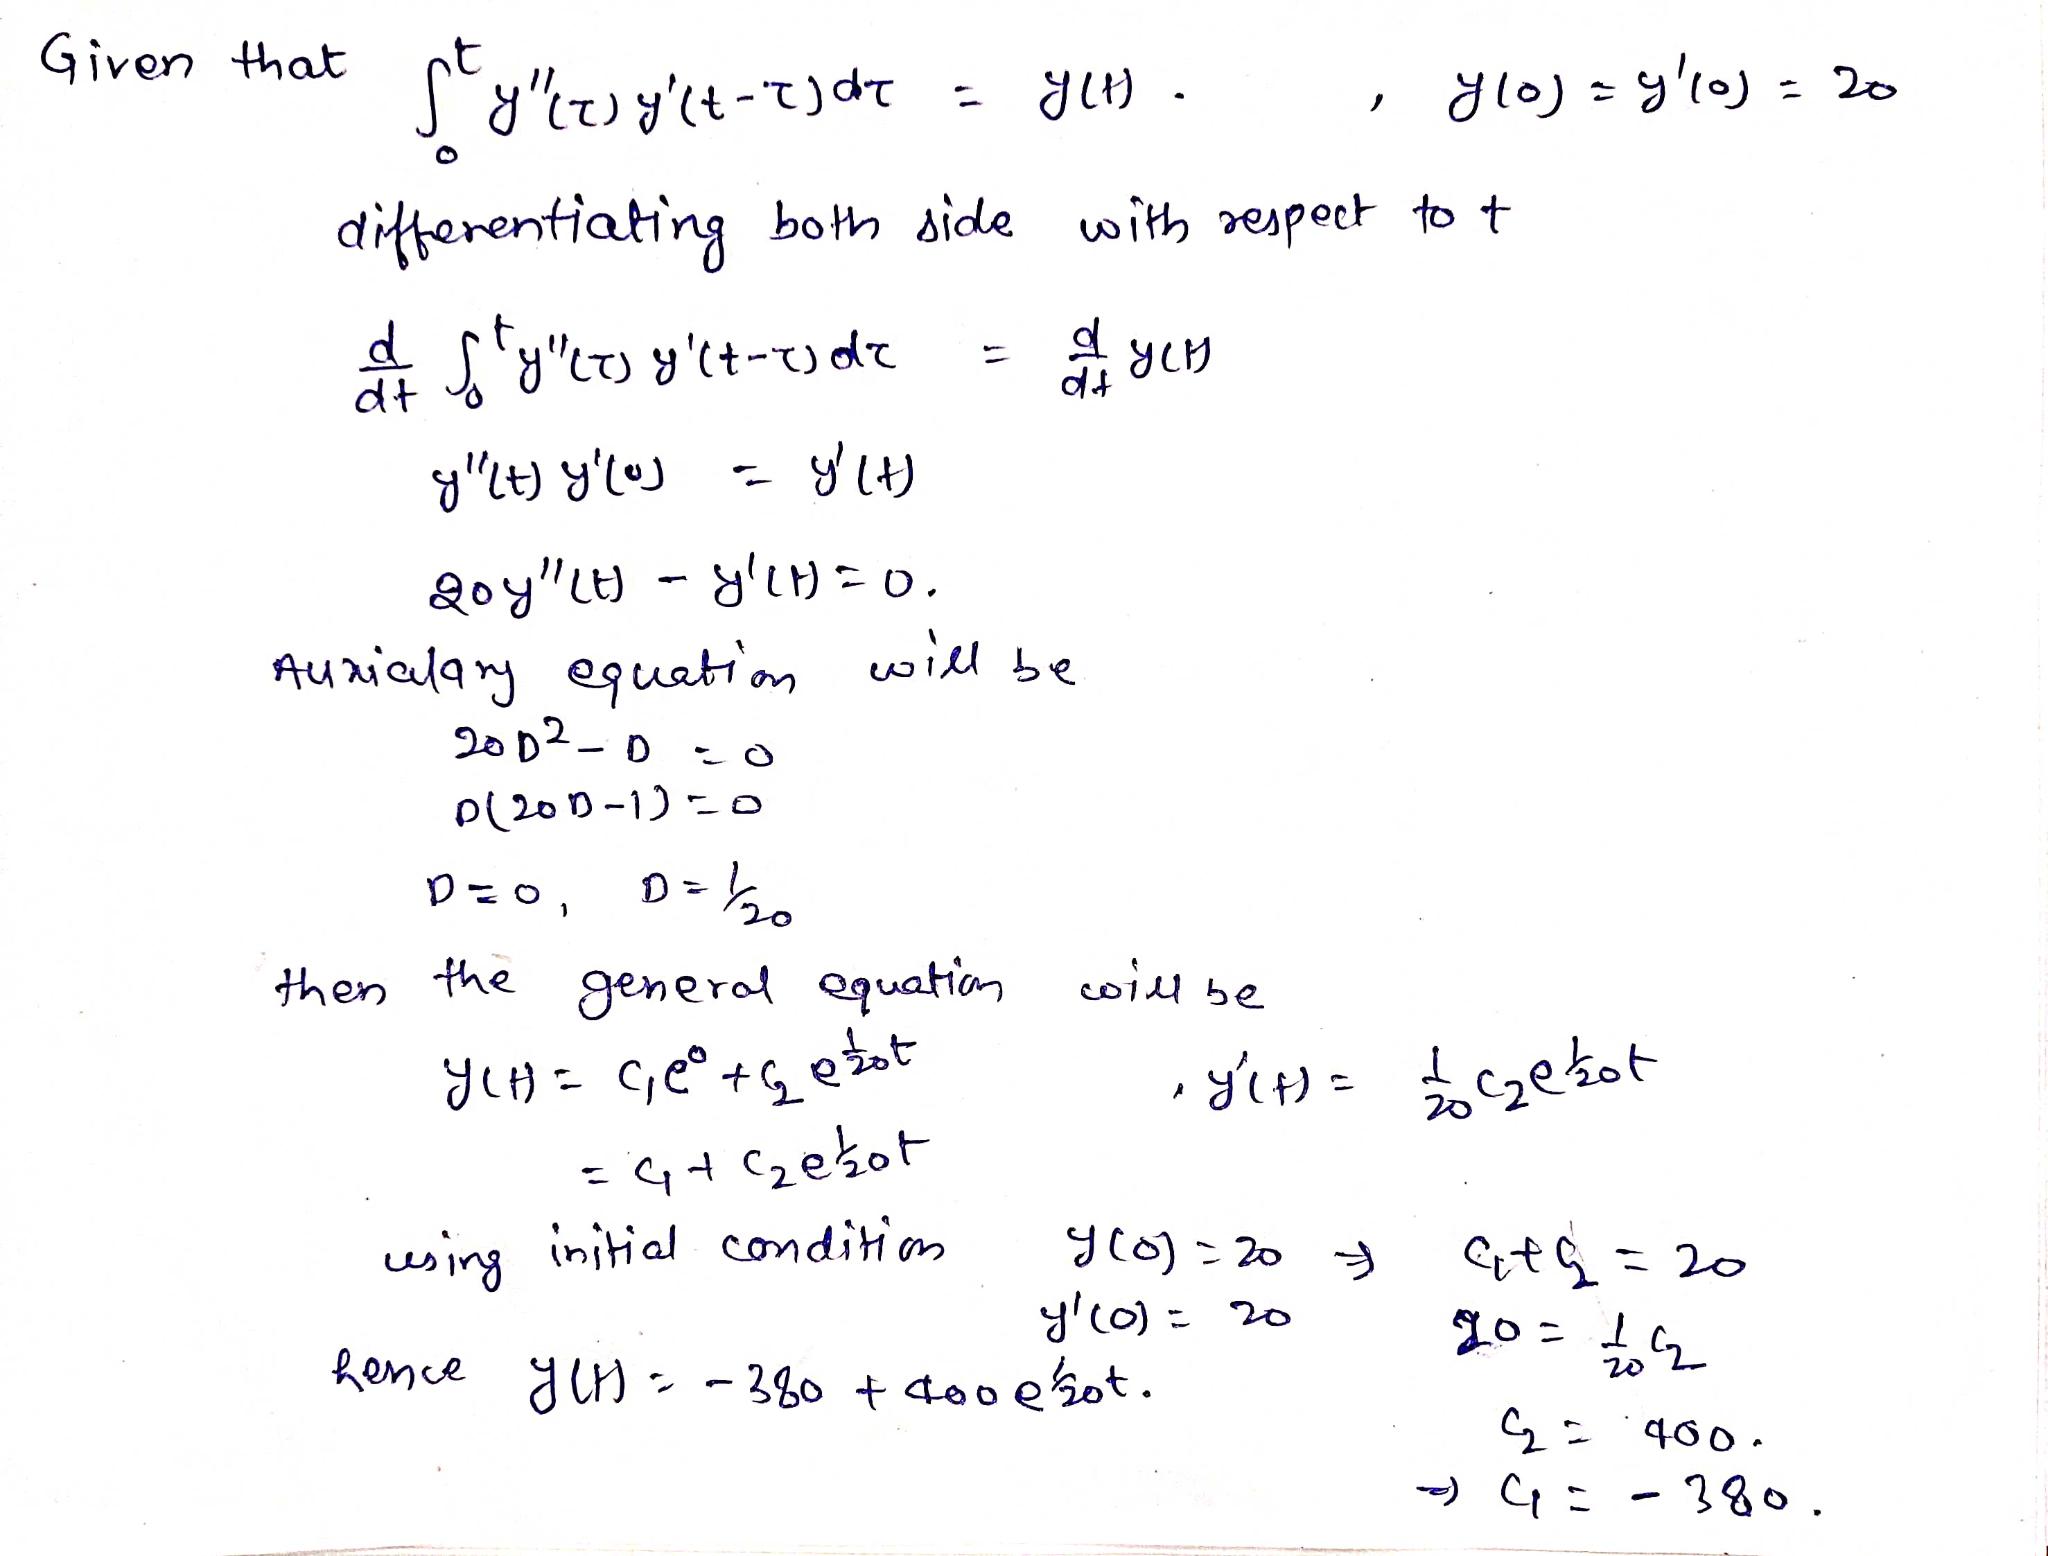 Given that ∫₀ᵗ y''(τ) y'(t-τ)dτ = y(t) . , y(0) = y'(0) = 20
differentiating both side with respect to t
d/dt ∫₀ᵗ y''(τ) y'(t-τ)dτ = d/dt y(t)
y''(t) y'(0) = y'(t)
20y''(t) - y'(t) = 0.
Auxialary equation will be
20D² - D = 0
D(20D-1) = 0
D=0, D=1/20
then the general equation will be
y(t) = C₁e⁰ + C₂ e^{1/20 t} , y'(t) = 1/20 C₂e^{1/20 t}
= C₁ + C₂e^{1/20 t}
using initial condition y(0) = 20 ⇒ C₁+C₂ = 20
y'(0) = 20 20 = 1/20 C₂
hence y(t) = -380 + 400 e^{1/20 t}.
C₂ = 400.
⇒ C₁ = -380.